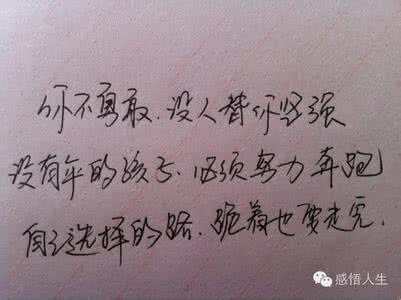 你不勇敢.没人替你坚强
没有伞的孩子.必须努力奔跑
自己选择的路.跪着也要走完.
感悟人生